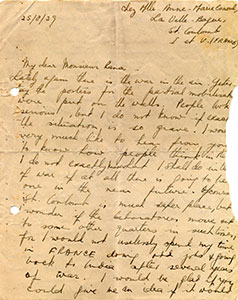 Chez Mlle. Anne-Marie
25/8/39
La Ville-Bague
St. Coulomb
I et V. (FRANCE)
My dear Monsieur Rana
Lately again there is the war in the air.
the posters for the partial mobilisation
were put on the walls. People look
serious, but I do not know if exactly
the situation is so grave. I would
very much like to hear from you
to know how people think in the
I do not exactly what I shall do in the
of war if at all there is going to be
one in the near future. Of course
St. Coulomb is much safer place, but
wonder if the laboratories move out
to some other quarters in such case,
for I would not uselessly spend my time
FRANCE doing and going
back to India after several years
of war. I would be glad if you
could give me an idea if it would